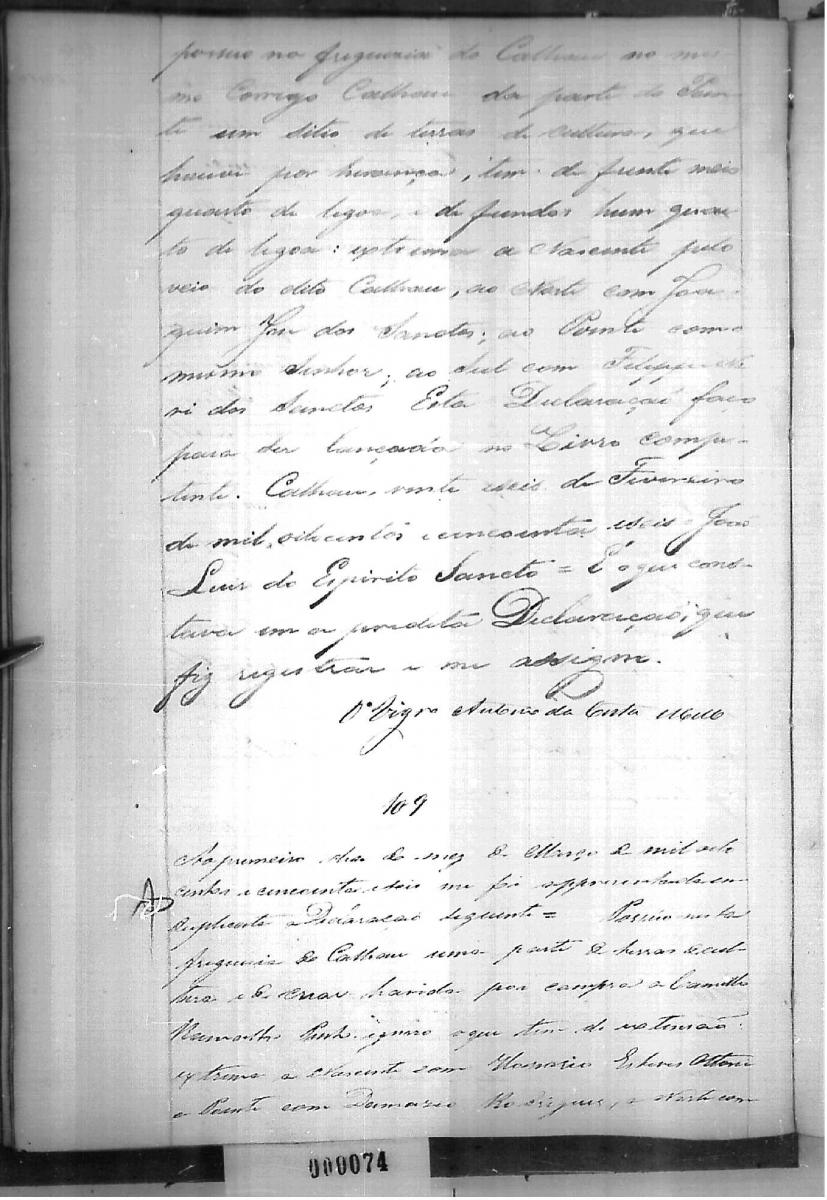 possuo na freguezia do Calhau no mes-
mo Corrego Calhau da parte do Poen-
te um sitio de terras de cultura, que
houve por herança, tem de frente meio
quarto de legoa, e de fundos hum quar-
to de legoa: extrema a Nascente pelo
veio do dito Calhau, ao Norte com Joa-
quim José dos Sanctos; ao Poente com o
mesmo Senhor; ao Sul com Filippe Ne-
ri dos Sanctos Esta Declaraçaõ faço
para ser lançada no Livro compe-
tente. Calhau, vinte eseis de Fevereiro
de mil, oitocentos e cincoenta eseis João
Luis do Espirito Sancto = É o que cons-
tava em a predita Declaração; que
fiz registrar e me assigno.
O Vigro Antonio da Costa Mello
109
Ao primeiro dia do mez de Março de mil oito
centos e cincoenta eseis me foi appresentada em
duplicata a Declaraçaõ seguinte = Possuo nesta
freguezia do Calhau uma parte de terras decul-
tura e de crear havida por compra a Camillo
ignoro oque tem de extensão:
extrema a Nascente com Honorio Esteves Ottoni
a Poente com Damazio Rodrigues, a Norte com
000074